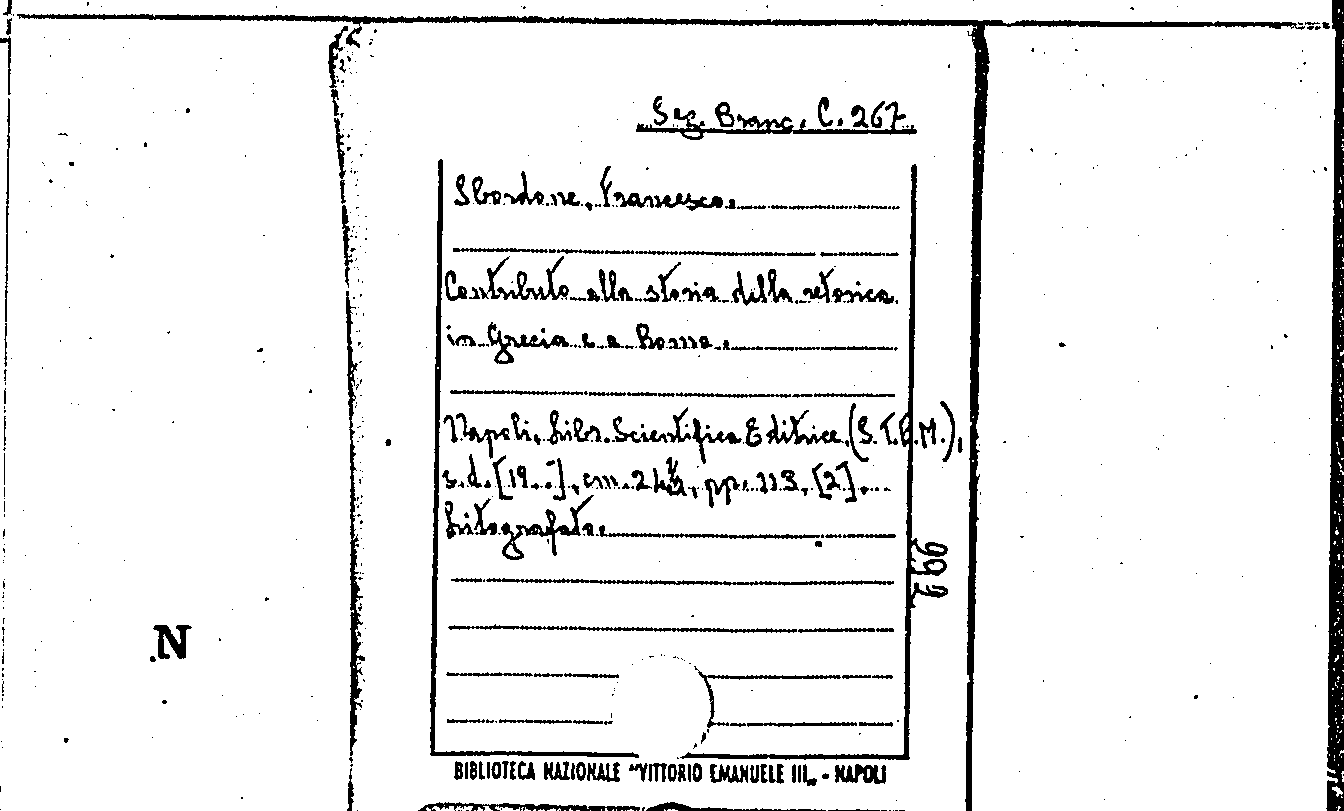 Seg. Branc. C. 267
Sbordone, Francesco.
Contributo alla storia della retorica
in Grecia e a Roma.
Napoli, Libr. Scientifica Editrice, (S.T.E.M.),
s.d. [19..], cm. 24½, pp. 113, [2].
Litografato.
992
N
BIBLIOTECA NAZIONALE "VITTORIO EMANUELE III„ - NAPOLI